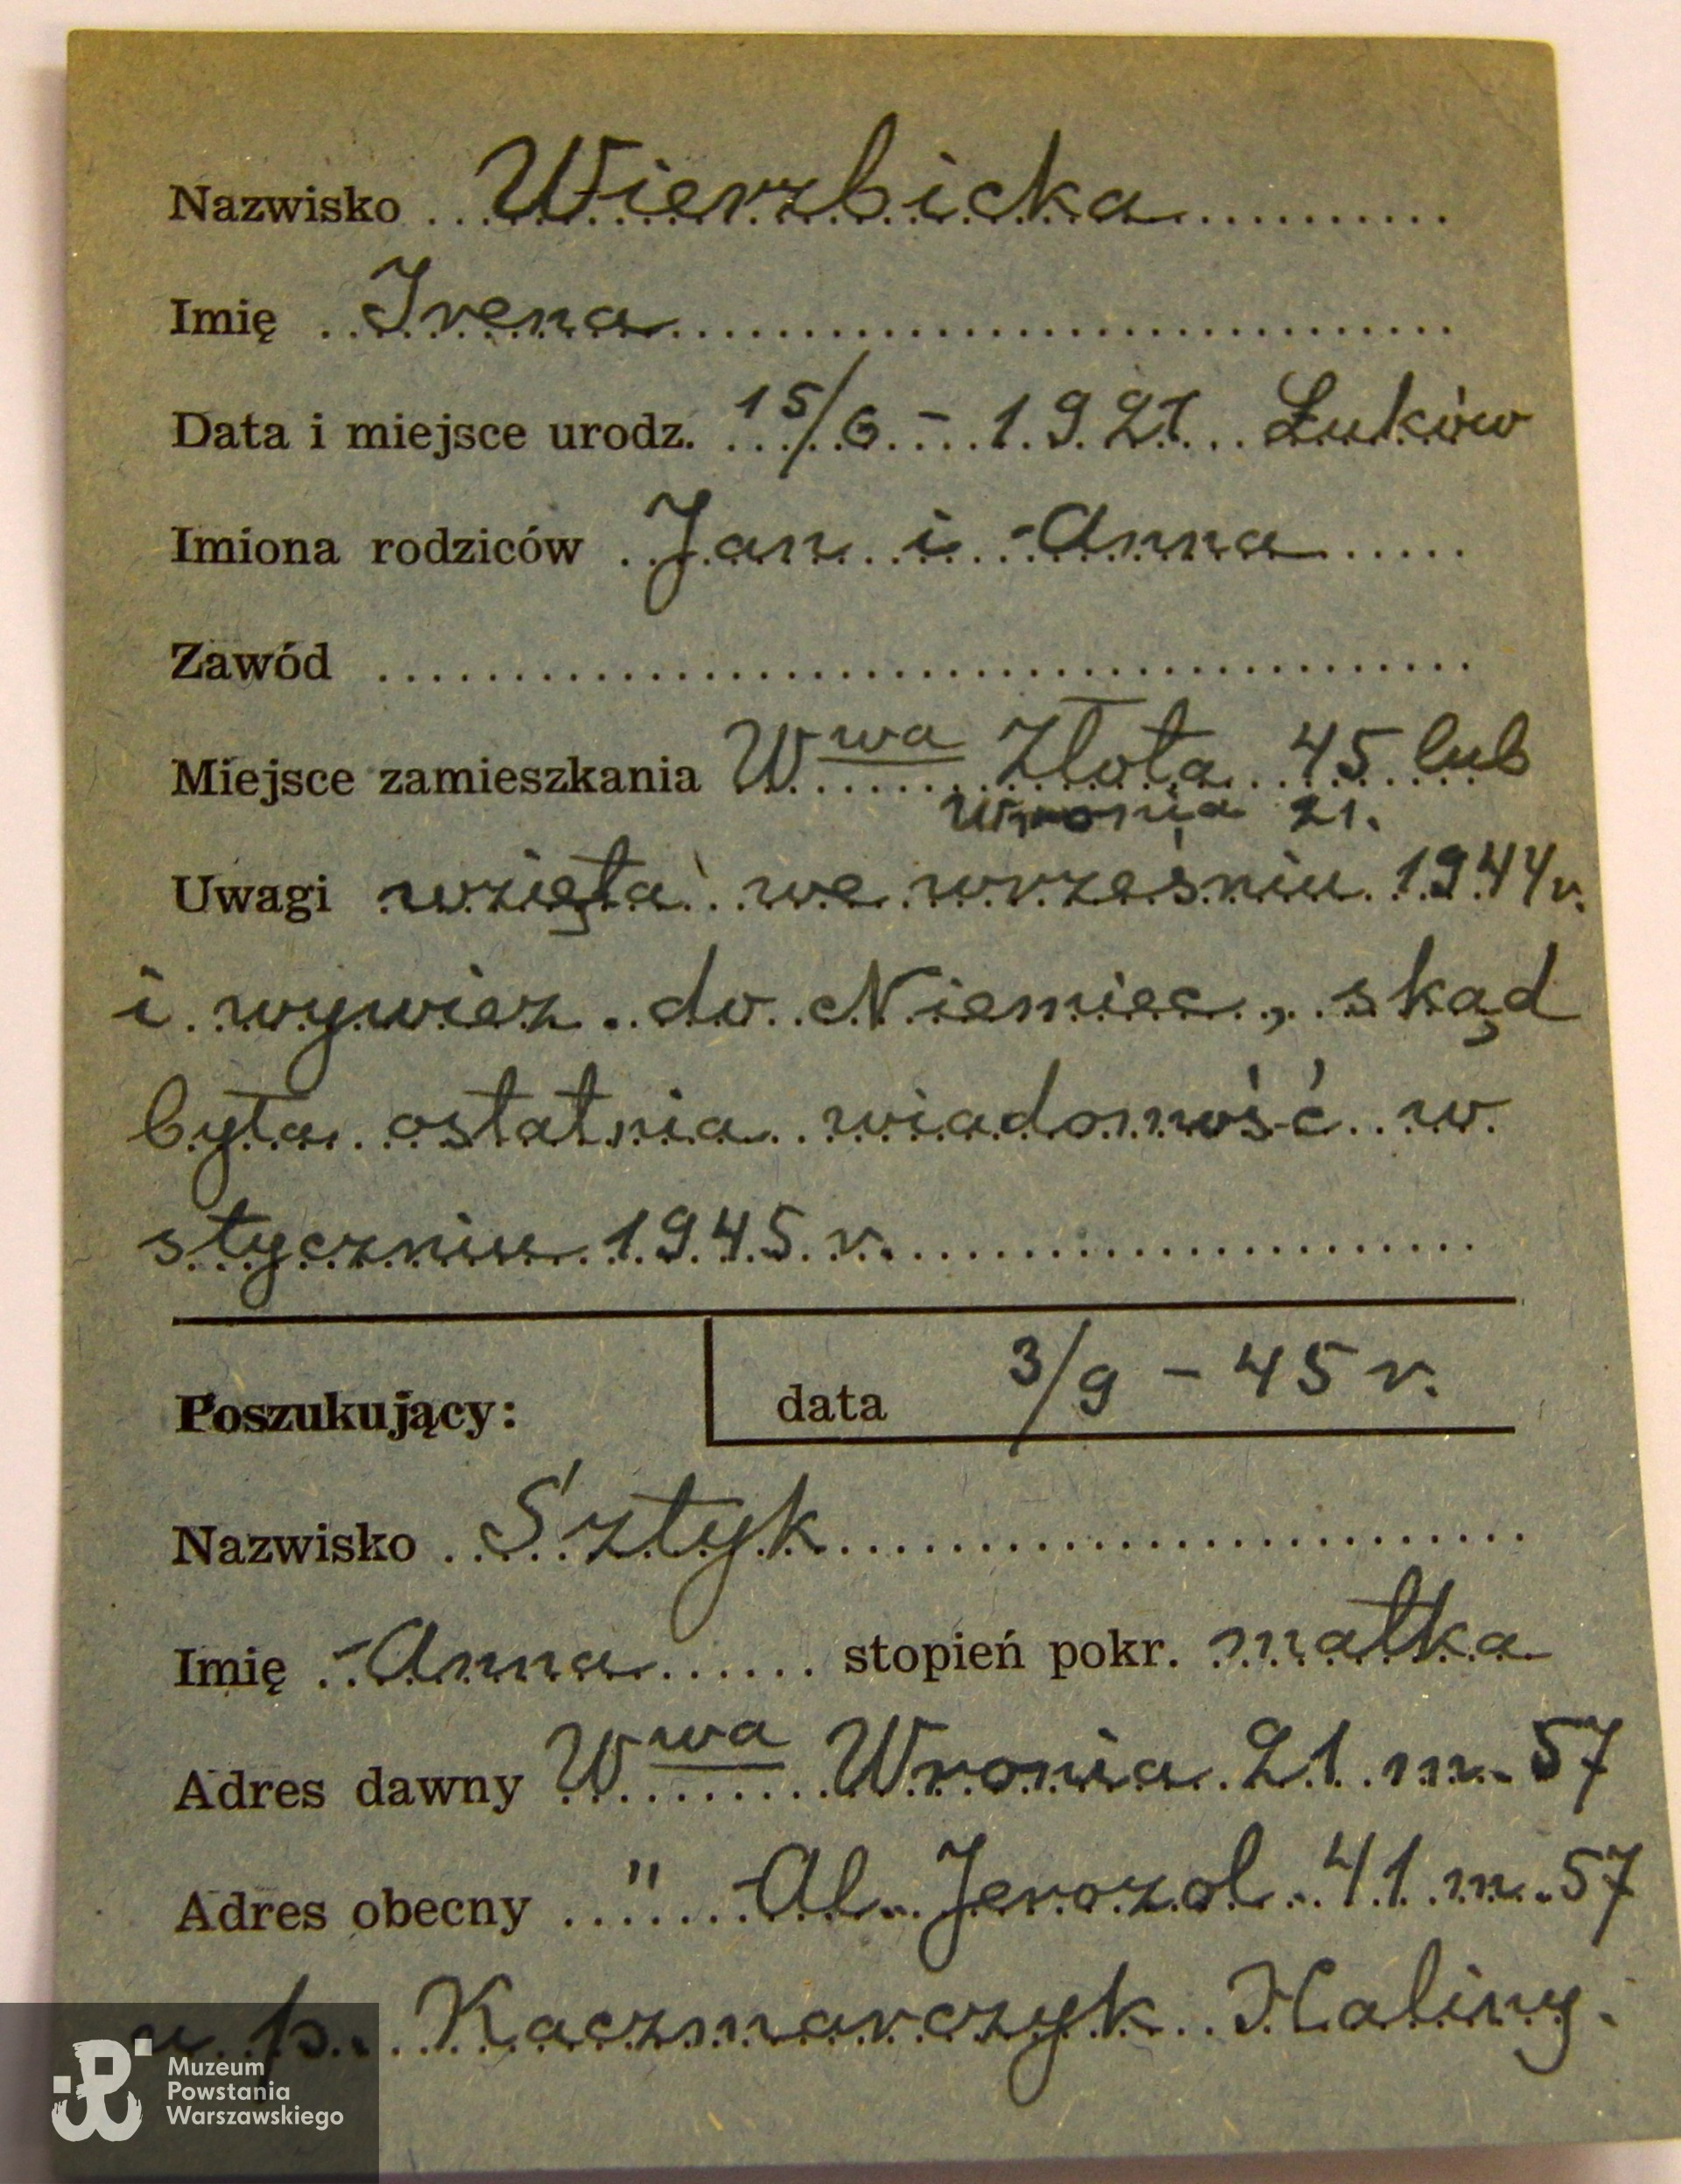 Nazwisko Wierzbicka
Imię Irena
Data i miejsce urodz. 15/6 - 1921 Łuków
Imiona rodziców Jan i Anna
Zawód
Miejsce zamieszkania Wwa Złota 45 lub
Wronia 21.
Uwagi wzięta we wrześniu 1944 r.
i wywiez. do Niemiec, skąd
była ostatnia wiadomość w
styczniu 1945 r.
Poszukujący: data 3/9 - 45 r.
Nazwisko Sztyk
Imię Anna stopień pokr. matka
Adres dawny Wwa Wronia 21 m. 57
Adres obecny " Al. Jerozol. 41 m. 57
u p. Kaczmarczyk Haliny.
Muzeum
Powstania
Warszawskiego